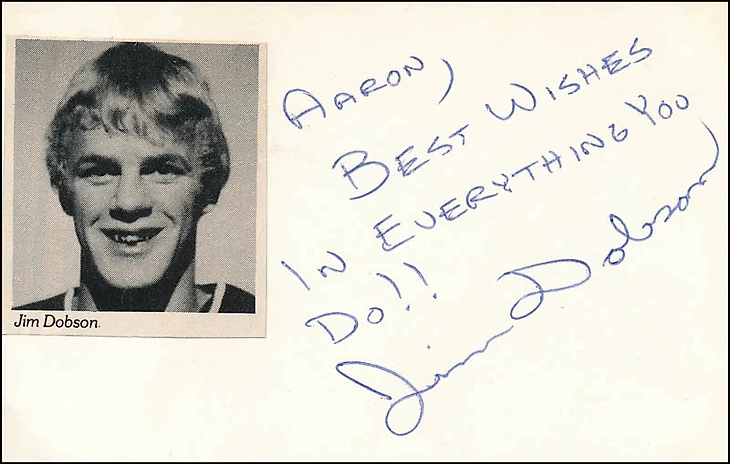 Jim Dobson
AARON,
BEST WISHES
IN EVERYTHING YOU
DO!!
Jim Dobson